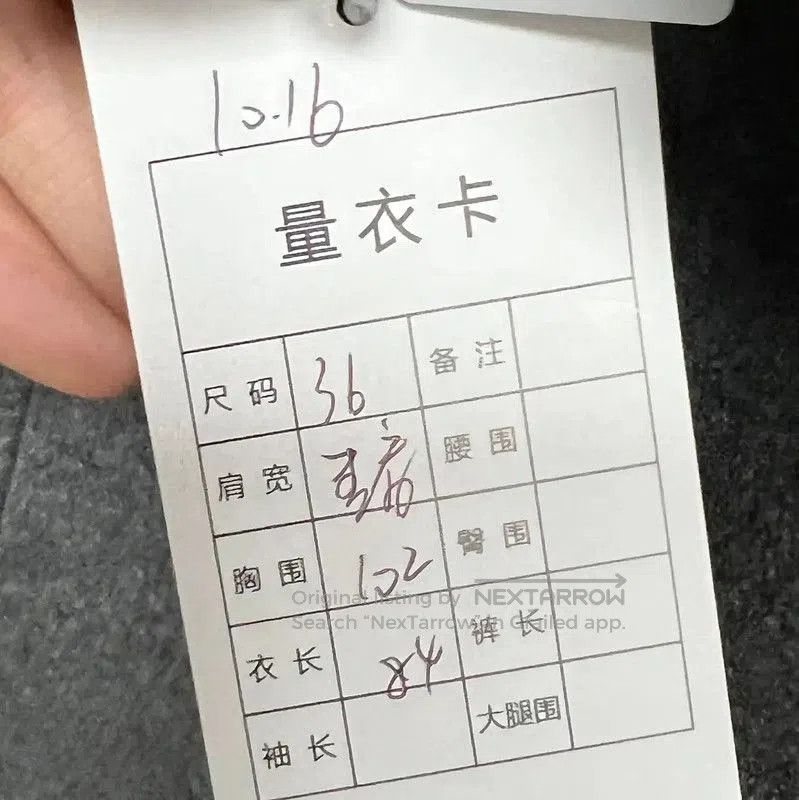 10.16
量衣卡
尺码 36 备注
肩宽 腰围
胸围 102 臀围
Original listing by NEXTARROW
Search "NexTarrow" in Grailed app.
衣长 84 裤长
袖长 大腿围